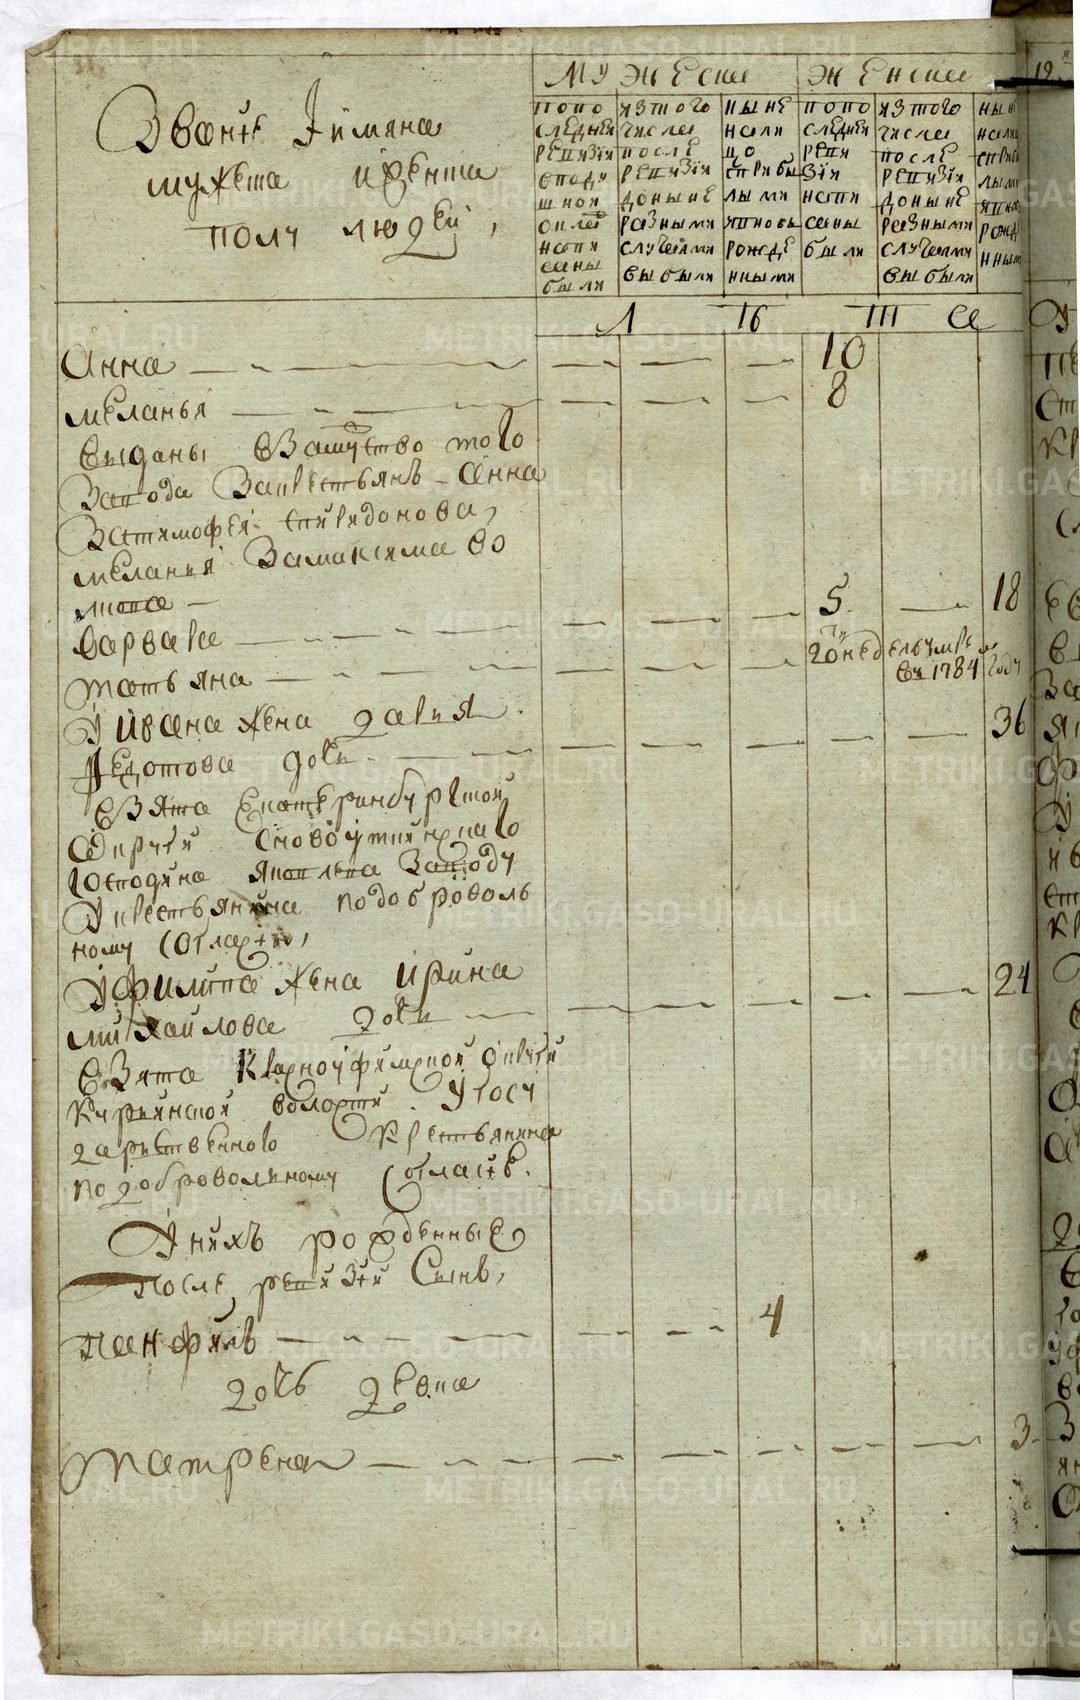 МУЖЕСКА
ЖЕНСКА
Званiе Iимяна
мужеска иженска
полу людей,
попо
следней
ревизiи
вподу
шной
окладъ
напи
саны
были
изтого
числа
после
ревизiи
доныне
разными
случаями
выбыли
ныне
нали
цо
сприбы
лыми
ивновь
рожде
нными
попо
следней
реви
зiи
напи
саны
были
изтого
числа
после
ревизiи
доныне
разными
случаями
выбыли
ны не
нали
сприб
лыми
ивно
рожд
нными
Л
16
III
а
Анна 10
меланья 8
выданы взамуство того
завода закрестьянъ анна
затимофея спиридонова,
меланья замаксима во
лкова
варвара 5 18
татьяна 20 нед ель умре
въ 1784 году
У ивана жена дарья 36
Федотова дочь
взята Екатеринбурской
округи сновоуткинскаго
господина яковлева заводу
У крестьянина подоброволь
ному согласию,
У филипа жена ирина 24
михайлова дочь
взята Красноуфимской округи
Кириинской волости У госу
дарственного крестьянина
подобровольному согласие.
У нихъ рожденные
после ревизiи Сынъ,
панфилъ 4
дочь девка
матрена 3